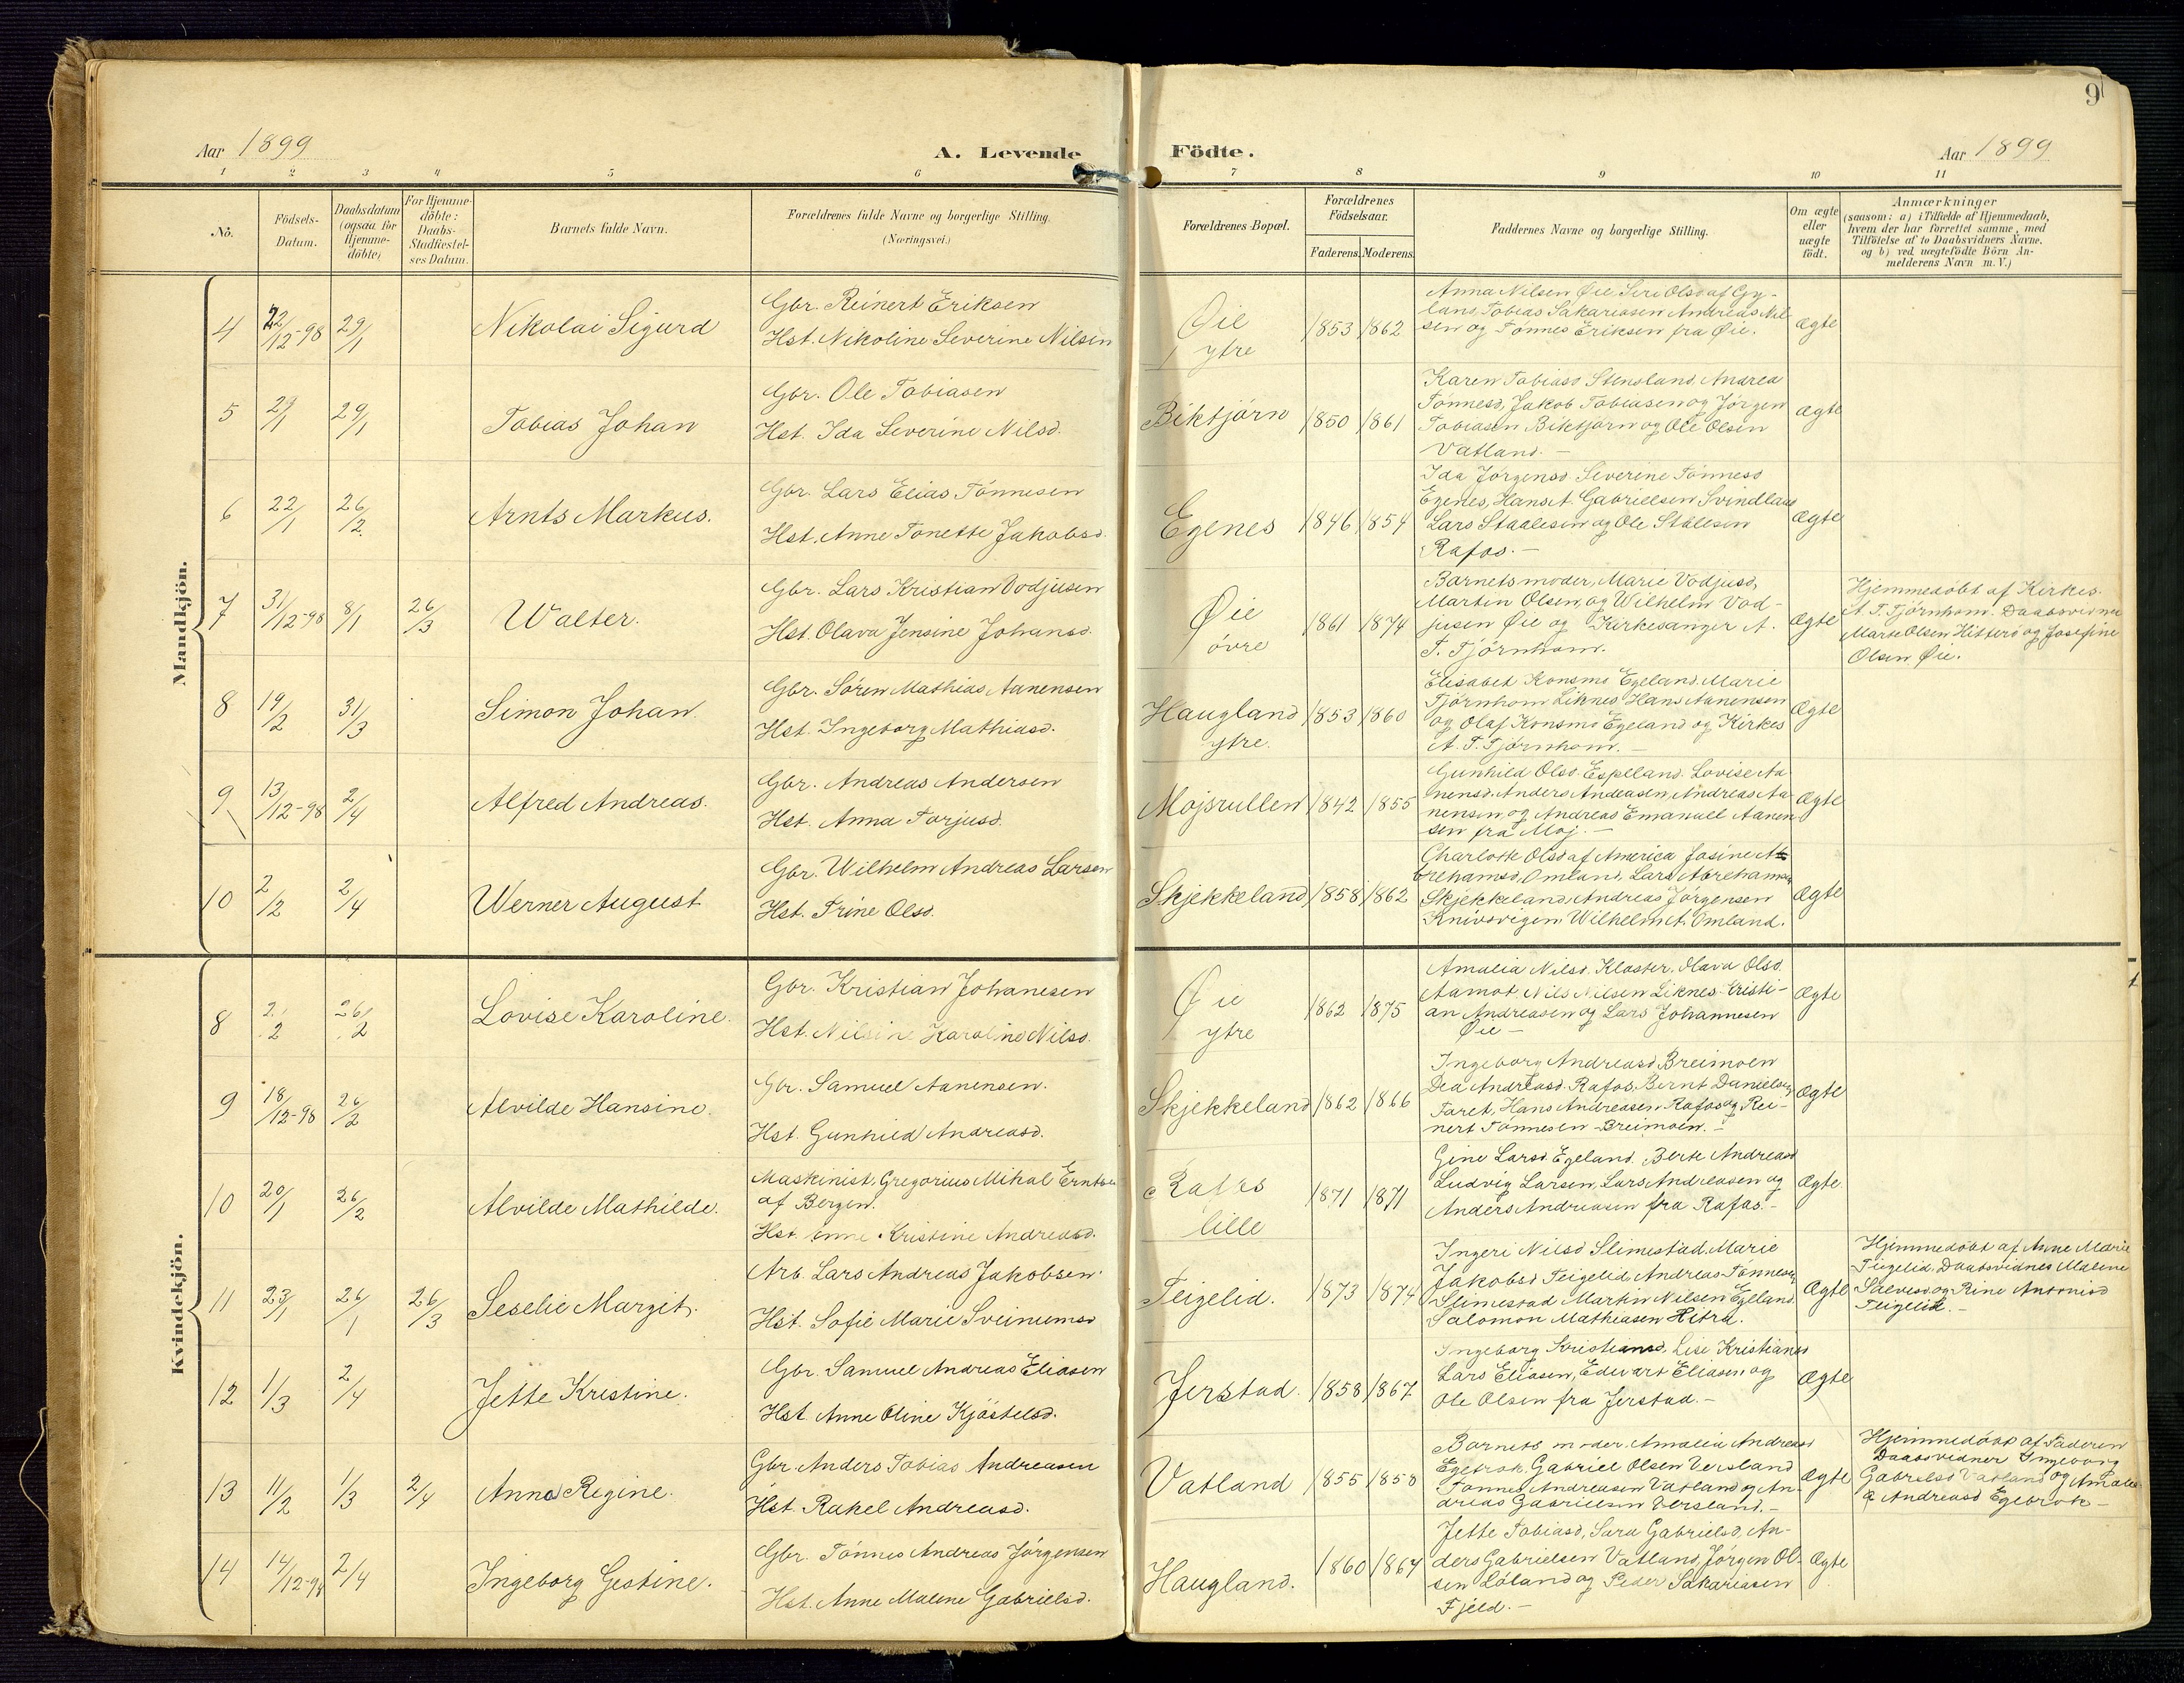 9
Aar 1899
A. Levende Födte.
Aar 1899
1 2 3 4 5 6 7 8 9 10 11
No.
Födsels-Datum.
Daabsdatum (ogsaa for Hjemme-döbte)
For Hjemme-döbte: Daabs-Stadfæstel-ses Datum.
Barnets fulde Navn.
Forældrenes fulde Navne og borgerlige Stilling.
(Næringsvei.)
Forældrenes Bopæl.
Forældrenes Födselsaar.
Faderens. Moderens.
Faddernes Navne og borgerlige Stilling.
Om ægte eller uægte födt.
Anmærkninger
(saasom: a) i Tilfælde af Hjemmedaab,
hvem der har forrettet samme, med
Tilföielse af to Daabsvidners Navne,
og b) ved uægtefödte Börn An-
melderens Navn m.V.)
Mandkjön.
4 22/12-98 29/1 Nikolai Sigurd
Gbr. Reinert Eriksen
Hst. Nikoline Severine Nilsen
Øie ytre 1853 1862
Anna Nilsen Øie, Siri Olsd af Gy-
land, Tobias Sakariasen Andreas Nil-
sen og Tønnes Eriksen fra Øie.
ægte
5 29/1 Tobias Johan
Gbr. Ole Tobiasen
Hst. Ida Severine Nilsd.
Biktjørn 1850 1861
Karen Tobiasd Stensland, Andrea
Tønnesd, Jakob Tobiasen og Jørgen
Tobiasen Biktjørn og Ole Olsen
Vatland. -
ægte
6 22/1 26/2 Arnts Markus.
Gbr. Lars Elias Tønnesen
Hst. Anne Tonette Jakobsd.
Egenes 1846 1854
Ida Jørgensd. Severine Tønnesd
Egenes, Hans A. Gabrielsen Svindland
Lars Staalesen og Ole Stålesen
Rafos. -
Ægte
7 31/12-98 8/1 26/3 Walter.
Gbr. Lars Kristian Vodjusen
Hst. Olava Jensine Johansd.
Øie øvre 1861 1874
Barnets moder, Marie Vodjusd,
Martin Olsen, og Wilhelm Vod-
jusen Øie og Kirkesanger A.
T. Tjørnhom.
Ægte
Hjemmedøbt af Kirkes.
A. T. Tjørnhom. Daabsvidner
Marie Olsen Hitterø og Josefine
Olsen Øie.
8 19/2 31/3 Simon Johan
Gbr. Søren Mathias Aanensen
Hst. Ingeborg Mathiasd.
Haugland ytre. 1853 1860
Elisabet Konsmo Egeland, Marie
Tjørnhom Liknes, Hans Aanensen
og Olaf Konsmo Egeland og Kirkes
A. T. Tjørnhom. -
Ægte
9 13/12-98 2/4 Alfred Andreas.
Gbr. Andreas Andersen
Hst. Anna Torjusd.
Mojsrullen 1842 1855
Gunhild Olsd. Espeland. Lovise Aa-
nensd, Anders Andeasen, Andreas Aa-
nensen og Andreas Emanuel Aanen-
sen fra Moj. -
Ægte
10 2/2 2/4 Werner August
Gbr. Wilhelm Andreas Larsen
Hst. Trine Olsd.
Skjekkeland 1858 1862
Charlotte Olsd af America Josine A
brehamsd, Omland, Lars Abrehamsen
Skjekkeland, Andreas Jørgensen
Knivsvigen Wilhelm A. Omland.
Ægte
Kvindekjön.
8 2/2 26/2 Lovise Karoline.
Gbr. Kristian Johanesen
Hst. Nilsine Karoline Nilsd.
Øie ytre 1862 1875
Amalia Nilsd. Kloster, Olava Olsd.
Aamot, Nils Nilsen Liknes Kristi-
an Andreasen og Lars Johannesen
Øie -
Ægte
9 18/12-98 26/2 Alvilde Hansine.
Gbr. Samuel Aanensen.
Hst. Gunhild Andreasd.
Skjekkeland 1862 1866
Ingeborg Andreasd, Breimoen
Dea Andreasd. Rafos, Bernt Danielsen
Faret, Hans Andreasen Rafos og Rei-
nert Tønnesen Breimoen. -
Ægte
10 20/1 26/2 Alvilde Mathilde.
Maskinist, Gregorius Mikal Erntsen
af Bergen.
Hst. Anne Kristine Andreasd.
Rafos lille 1871 1871
Gine Larsd Egeland. Berte Andreasd
Ludvig Larsen, Lars Andreasen og
Anders Andreasen fra Rafos. -
Ægte
11 23/1 26/1 26/3 Seselie Margit.
Arb. Lars Andreas Jakobsen
Hst. Sofie Marie Sveinumsd
Teigelid. 1873 1874
Ingeri Nilsd Slimestad, Marie
Jakobsd Teigelid, Andreas Tønnesen
Slimestad Martin Nilsen Egeland.
Salomon Mathiasen Hitra.
Ægte
Hjemmedøbt af Anne Marie
Teigelid, Daabsvidner Malene
Salvesd og Rine Antonisd
Teigelid. -
12 1/3 2/4 Jette Kristine.
Gbr. Samuel Andreas Eliasen
Hst. Anne Oline Kjøstelsd.
Jerstad. 1858 1867
Ingeborg Kristiansd, Lise Kristiansd
Lars Eliasen, Edvart Eliasen og
Ole Olsen fra Jerstad. -
Ægte
13 11/2 1/3 2/4 Anna Regine.
Gbr. Anders Tobias Andreasen
Hst. Rakel Andreasd.
Vatland 1855 1858
Barnets moder, Amalia Andreasd
Egebrok, Gabriel Olsen Versland
Tønnes Andreasen Vatland og An-
dreas Gabrielsen Versland. -
Ægte
Hjemmedøbt af Faderen
Daabsvidner Ingeborg
Gabrielsd Vatland og Amalia
Andreasd Egebrok -
14 14/12-98 2/4 Ingeborg Gestine.
Gbr. Tønnes Andreas Jørgensen
Hst. Anne Malene Gabrielsd.
Haugland. 1860 1864
Jette Tobiasd, Sara Gabrielsd, An-
ders Gabrielsen Vatland, Jørgen Ol-
sen Løland og Peder Sakariasen
Fjeld. -
Ægte